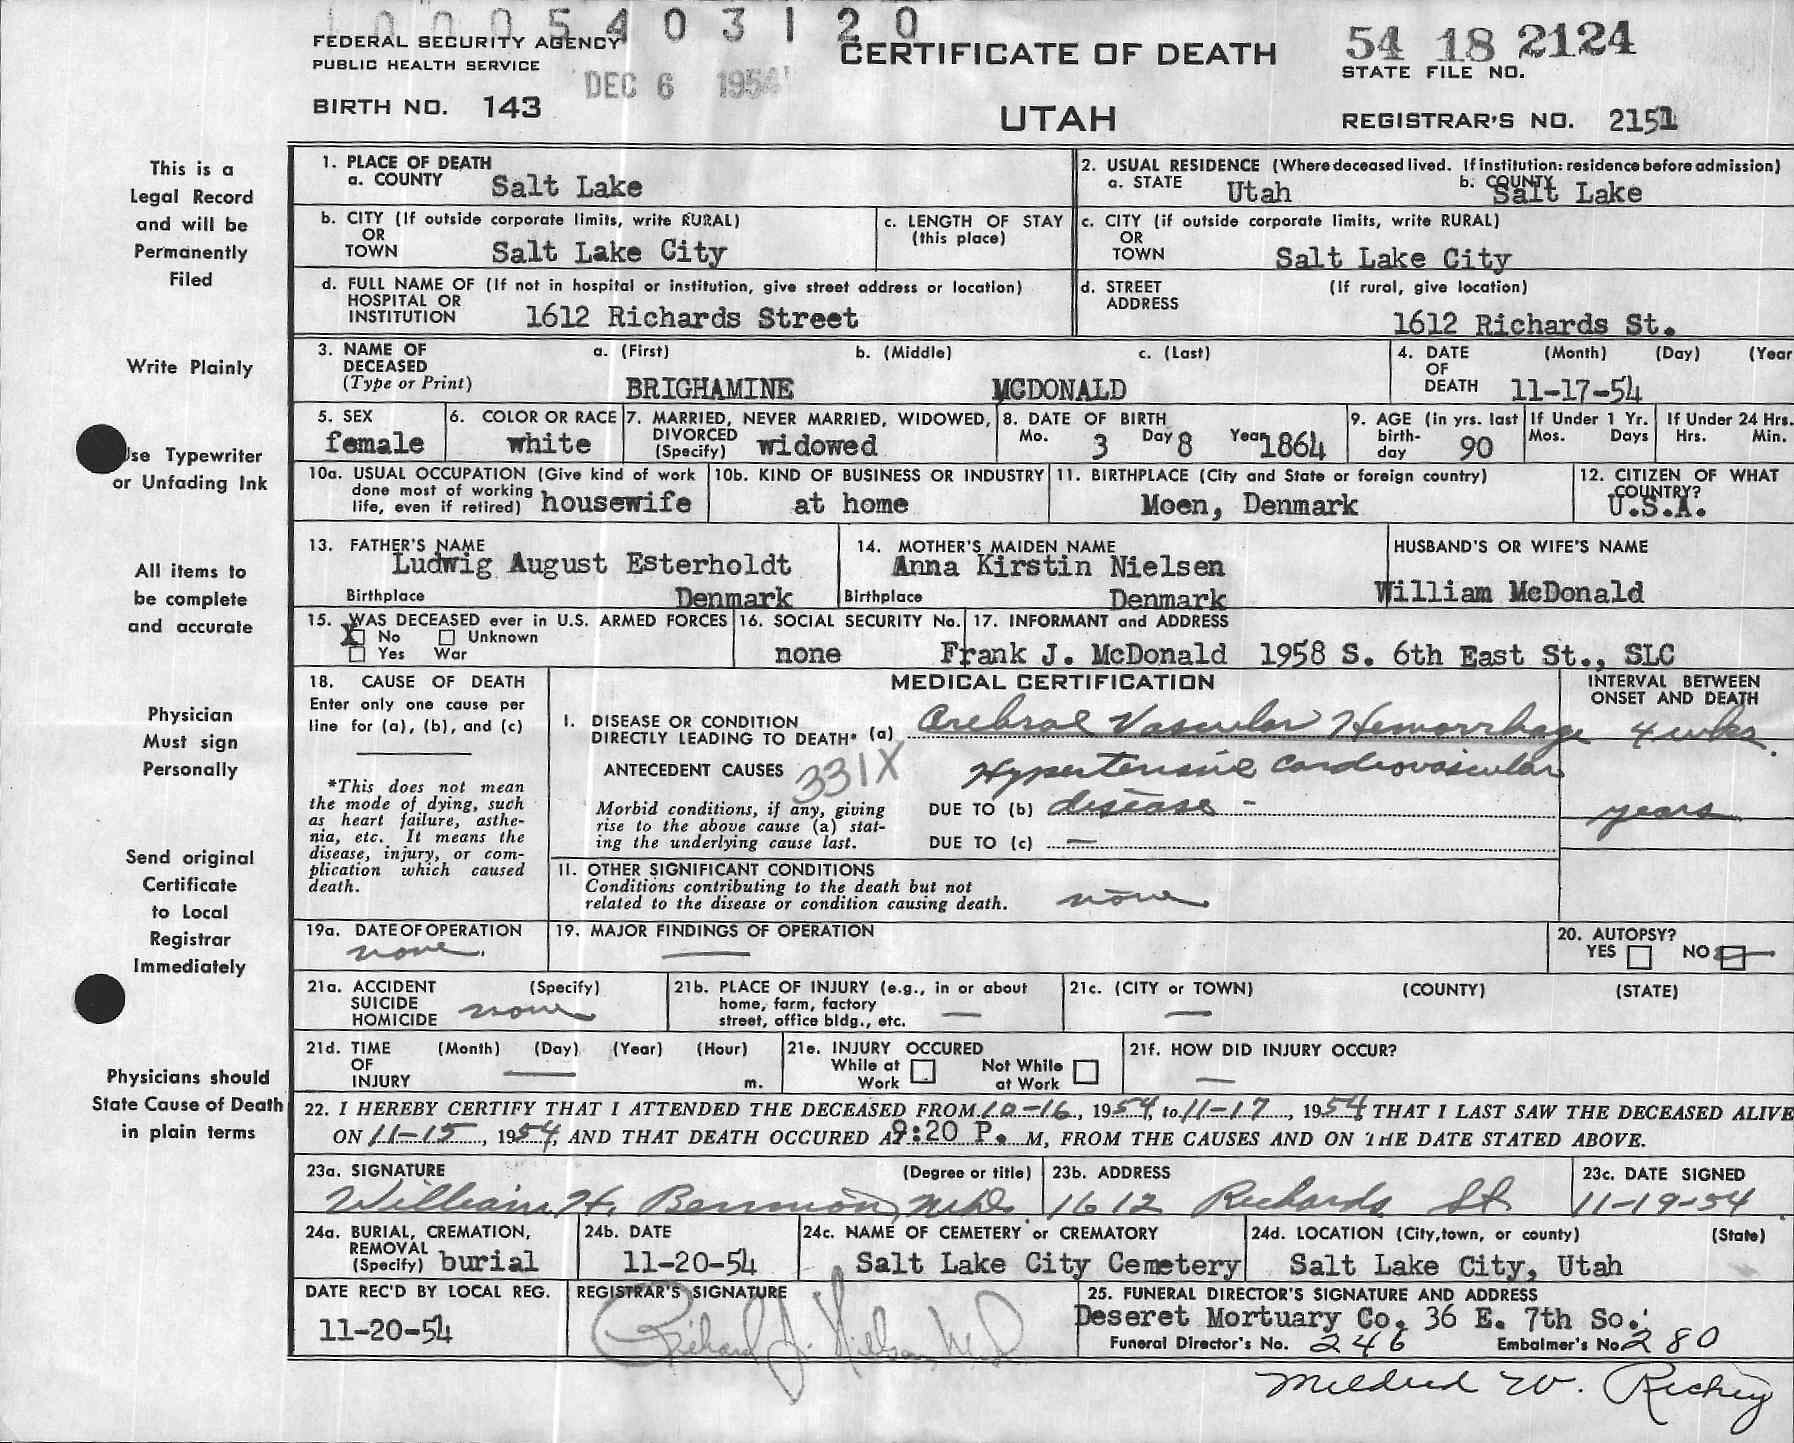 1 0 0 0 5 4 0 3 1 2 0
FEDERAL SECURITY AGENCY
PUBLIC HEALTH SERVICE
DEC 6 1954
BIRTH NO. 143
CERTIFICATE OF DEATH
UTAH
54 18 2124
STATE FILE NO.
REGISTRAR'S NO. 2151
This is a
Legal Record
and will be
Permanently
Filed
Write Plainly
Use Typewriter
or Unfading Ink
All items to
be complete
and accurate
Physician
Must sign
Personally
Send original
Certificate
to Local
Registrar
Immediately
Physicians should
State Cause of Death
in plain terms
1. PLACE OF DEATH
a. COUNTY Salt Lake
2. USUAL RESIDENCE (Where deceased lived. If institution: residence before admission)
a. STATE Utah b. COUNTY Salt Lake
b. CITY (If outside corporate limits, write RURAL)
OR
TOWN Salt Lake City
c. LENGTH OF STAY
(this place)
c. CITY (if outside corporate limits, write RURAL)
OR
TOWN Salt Lake City
d. FULL NAME OF (If not in hospital or institution, give street address or location)
HOSPITAL OR
INSTITUTION 1612 Richards Street
d. STREET (If rural, give location)
ADDRESS
1612 Richards St.
3. NAME OF a. (First) b. (Middle) c. (Last)
DECEASED
(Type or Print) BRIGHAMINE MCDONALD
4. DATE (Month) (Day) (Year
OF
DEATH 11-17-54
5. SEX
female
6. COLOR OR RACE
white
7. MARRIED, NEVER MARRIED, WIDOWED,
DIVORCED
(Specify) widowed
8. DATE OF BIRTH
Mo. 3 Day 8 Year 1864
9. AGE (in yrs. last
birth-
day 90
If Under 1 Yr.
Mos. Days
If Under 24 Hrs.
Hrs. Min.
10a. USUAL OCCUPATION (Give kind of work
done most of working
life, even if retired) housewife
10b. KIND OF BUSINESS OR INDUSTRY
at home
11. BIRTHPLACE (City and State or foreign country)
Moen, Denmark
12. CITIZEN OF WHAT
COUNTRY?
U.S.A.
13. FATHER'S NAME
Ludwig August Esterholdt
Birthplace Denmark
14. MOTHER'S MAIDEN NAME
Anna Kirstin Nielsen
Birthplace Denmark
HUSBAND'S OR WIFE'S NAME
William McDonald
15. WAS DECEASED ever in U.S. ARMED FORCES
X No Unknown
Yes War
16. SOCIAL SECURITY No.
none
17. INFORMANT and ADDRESS
Frank J. McDonald 1958 S. 6th East St., SLC
18. CAUSE OF DEATH
Enter only one cause per
line for (a), (b), and (c)
*This does not mean
the mode of dying, such
as heart failure, asthe-
nia, etc. It means the
disease, injury, or com-
plication which caused
death.
MEDICAL CERTIFICATION
INTERVAL BETWEEN
ONSET AND DEATH
I. DISEASE OR CONDITION
DIRECTLY LEADING TO DEATH* (a) Cerebral Vascular Hemorrhage 4 wks.
ANTECEDENT CAUSES 331X Hypertensive Cardiovascular
Morbid conditions, if any, giving
rise to the above cause (a) stat-
ing the underlying cause last.
DUE TO (b) disease - years
DUE TO (c) —
II. OTHER SIGNIFICANT CONDITIONS
Conditions contributing to the death but not
related to the disease or condition causing death. none
19a. DATE OF OPERATION
none.
19. MAJOR FINDINGS OF OPERATION
—
20. AUTOPSY?
YES NO
21a. ACCIDENT (Specify)
SUICIDE
HOMICIDE none
21b. PLACE OF INJURY (e.g., in or about
home, farm, factory
street, office bldg., etc. —
21c. (CITY or TOWN) (COUNTY) (STATE)
—
21d. TIME (Month) (Day) (Year) (Hour)
OF
INJURY — m.
21e. INJURY OCCURED
While at Not While
Work at Work
21f. HOW DID INJURY OCCUR?
—
22. I HEREBY CERTIFY THAT I ATTENDED THE DECEASED FROM 10-16, 1954, to 11-17, 1954 THAT I LAST SAW THE DECEASED ALIVE
ON 11-15, 1954, AND THAT DEATH OCCURED AT 9:20 P. M, FROM THE CAUSES AND ON THE DATE STATED ABOVE.
23a. SIGNATURE (Degree or title)
William H. M.D.
23b. ADDRESS
1612 Richards St
23c. DATE SIGNED
11-19-54
24a. BURIAL, CREMATION,
REMOVAL
(Specify) burial
24b. DATE
11-20-54
24c. NAME OF CEMETERY or CREMATORY
Salt Lake City Cemetery
24d. LOCATION (City, town, or county) (State)
Salt Lake City, Utah
DATE REC'D BY LOCAL REG.
11-20-54
REGISTRAR'S SIGNATURE
Richard J. Nielson, M.D.
25. FUNERAL DIRECTOR'S SIGNATURE AND ADDRESS
Deseret Mortuary Co. 36 E. 7th So.
Funeral Director's No. 246 Embalmer's No. 280
Mildred W. Richey